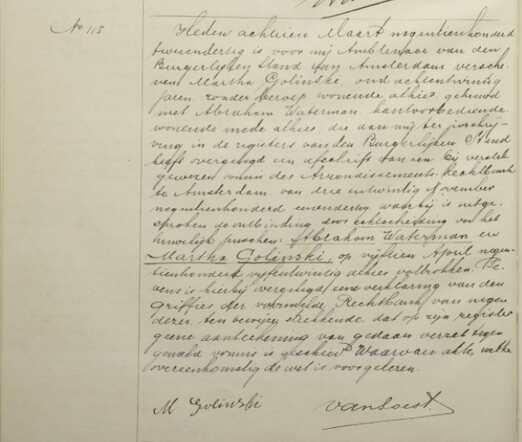 No 115
Heden achttien Maart negentienhonderd
tweeendertig is voor mij Ambtenaar van den
Burgerlijken Stand van Amsterdam versche-
nen Martha Golinski, oud achtentwintig
jaren, zonder beroep wonende alhier, gehuwd
met Abraham Waterman, kantoorbediende
wonende mede alhier, die aan mij ter inschrij-
ving in de registers van den Burgerlijken Stand
heeft overgelegd een afschrift van een bij verstek
gewezen vonnis der Arrondissements Rechtbank
te Amsterdam van drie en twintig November
negentienhonderd eenendertig waarbij is uitge-
sproken de ontbinding door echtscheiding van het
huwelijk tusschen: Abraham Waterman en
Martha Golinski, op vijftien April negen-
tienhonderd vijfentwintig alhier voltrokken.
is hierbij overgelegd eene verklaring van den
griffier der voormelde Rechtbank van negen
dezer, ten bewijze strekkende, dat op zijn register
geene aanteekening van gedaan verzet tegen
gemeld vonnis is geschied. Waarvan akte, welke
overeenkomstig de wet is voorgelezen.
M Golinski
van Soest